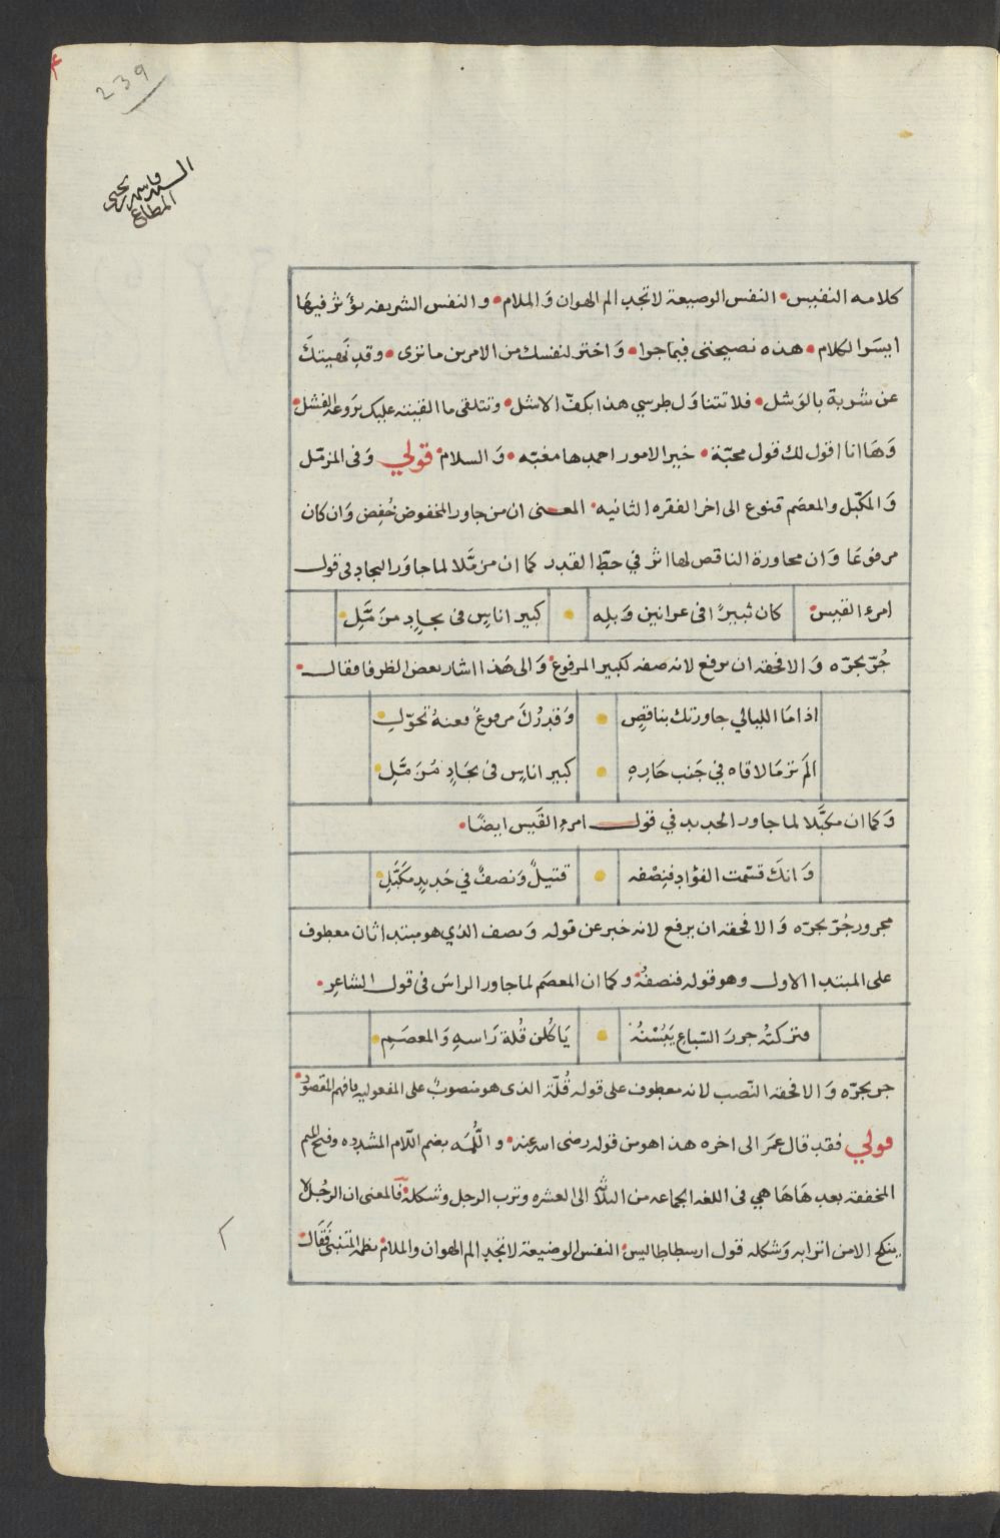 239
السيد قاسم يحيى
المطاع
كلامه النفيس • النفس الوصيعة لا تجد الم الهوان وَالملام • و النفس الشريفه يؤثر فيهَا
ايسَر الكلام • هذه نصيحتى فيما جرا • وَاختر لنفسك من الامرين ما ترى • وقد نَهيتكَ
عن شربة بالوَشل • فلا تتناوَل طرسي هذا بكفّ الاشل • وتتلقى ما القيته عليك برَوعة الفشل •
وَهَا انا اقول لك قول محبّة • خير الامور احمدها مغبّه • وَالسلام قولي وَفى المزمّل
وَالمكبّل والمعصَم قنوع الى اخر الفقره الثانيه • المعنى ان من جاور المخفوض خُفِض وَان كان
مرفوعًا وَان محاورة الناقص لها اثر في حطّ القدر كما ان مزمَّلا لما جاوَر البجاد فى قول
امرء القيس • كان ثبيرًا فى عرانين وَبلِه • كبير اناسٍ فى بجادٍ مزَمَّلِ •
جُرّ بجرّه وَالا فحقه ان يرفع لانه صفه لكبير المرفوع • وَالى هَذا اشار بعض الظرفا فقال •
اذا مَا الليالي جاورتك بناقصٍ • وَقدرُكَ مرفوعٌ فعنهُ تحوّلِ •
المَ تر مَا لاقاه في جَنب جَارهِ • كبير اناسٍ فى بجَادٍ مُزَمَّلِ •
وَكما ان مكبَّلا لما جاور الحديد في قول امرء القَيس ايضًا •
وَانكَ قسّمت الفؤاد فنِصْفه • قتيلٌ وَنصفٌ في حَديدٍ مكَبَّلِ •
مجرور جُرّ بجرّه وَالا فحقه ان يرفع لانه خبر عن قوله وَنصف الذي هو مبتدا ثان معطوف
على المبتدا الاول وهو قوله فنصفهُ • وكما ان المعصَم لما جاور الراسَ فى قول الشاعِر •
فتركتهُ جزرَ السّباع يَنُشْنهُ • يَاكُلن قُلة رَاسهِ وَالمعصَمِ •
جر بجرّه وَالا فحقه النّصب لانه معطوف على قوله قُلّة الذى هو منصوبٌ على المفعوليه فافهم المقصود •
قولي فقد قال عمَر الى اخره هذا هو من قوله رضى الله عنه • و اللُّمَه بضم اللّام المشدده وفتح الميم
المخففه بعدهَا هَا هي فى اللغه الجماعه من الثلاثه الى العشره وترب الرجل وشكله • فالمعنى ان الرجُل لا
ينكح الا من اترابه وَشكله قول ارسطاطاليس • النفس الوضيعة لا تجد الم الهوان والملام • نظمه المتنبى فَقَال •